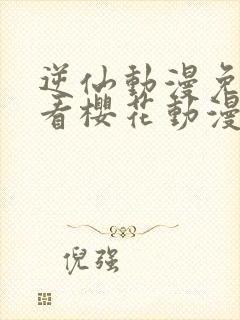 逆仙動漫免
看櫻花動漫
倪强